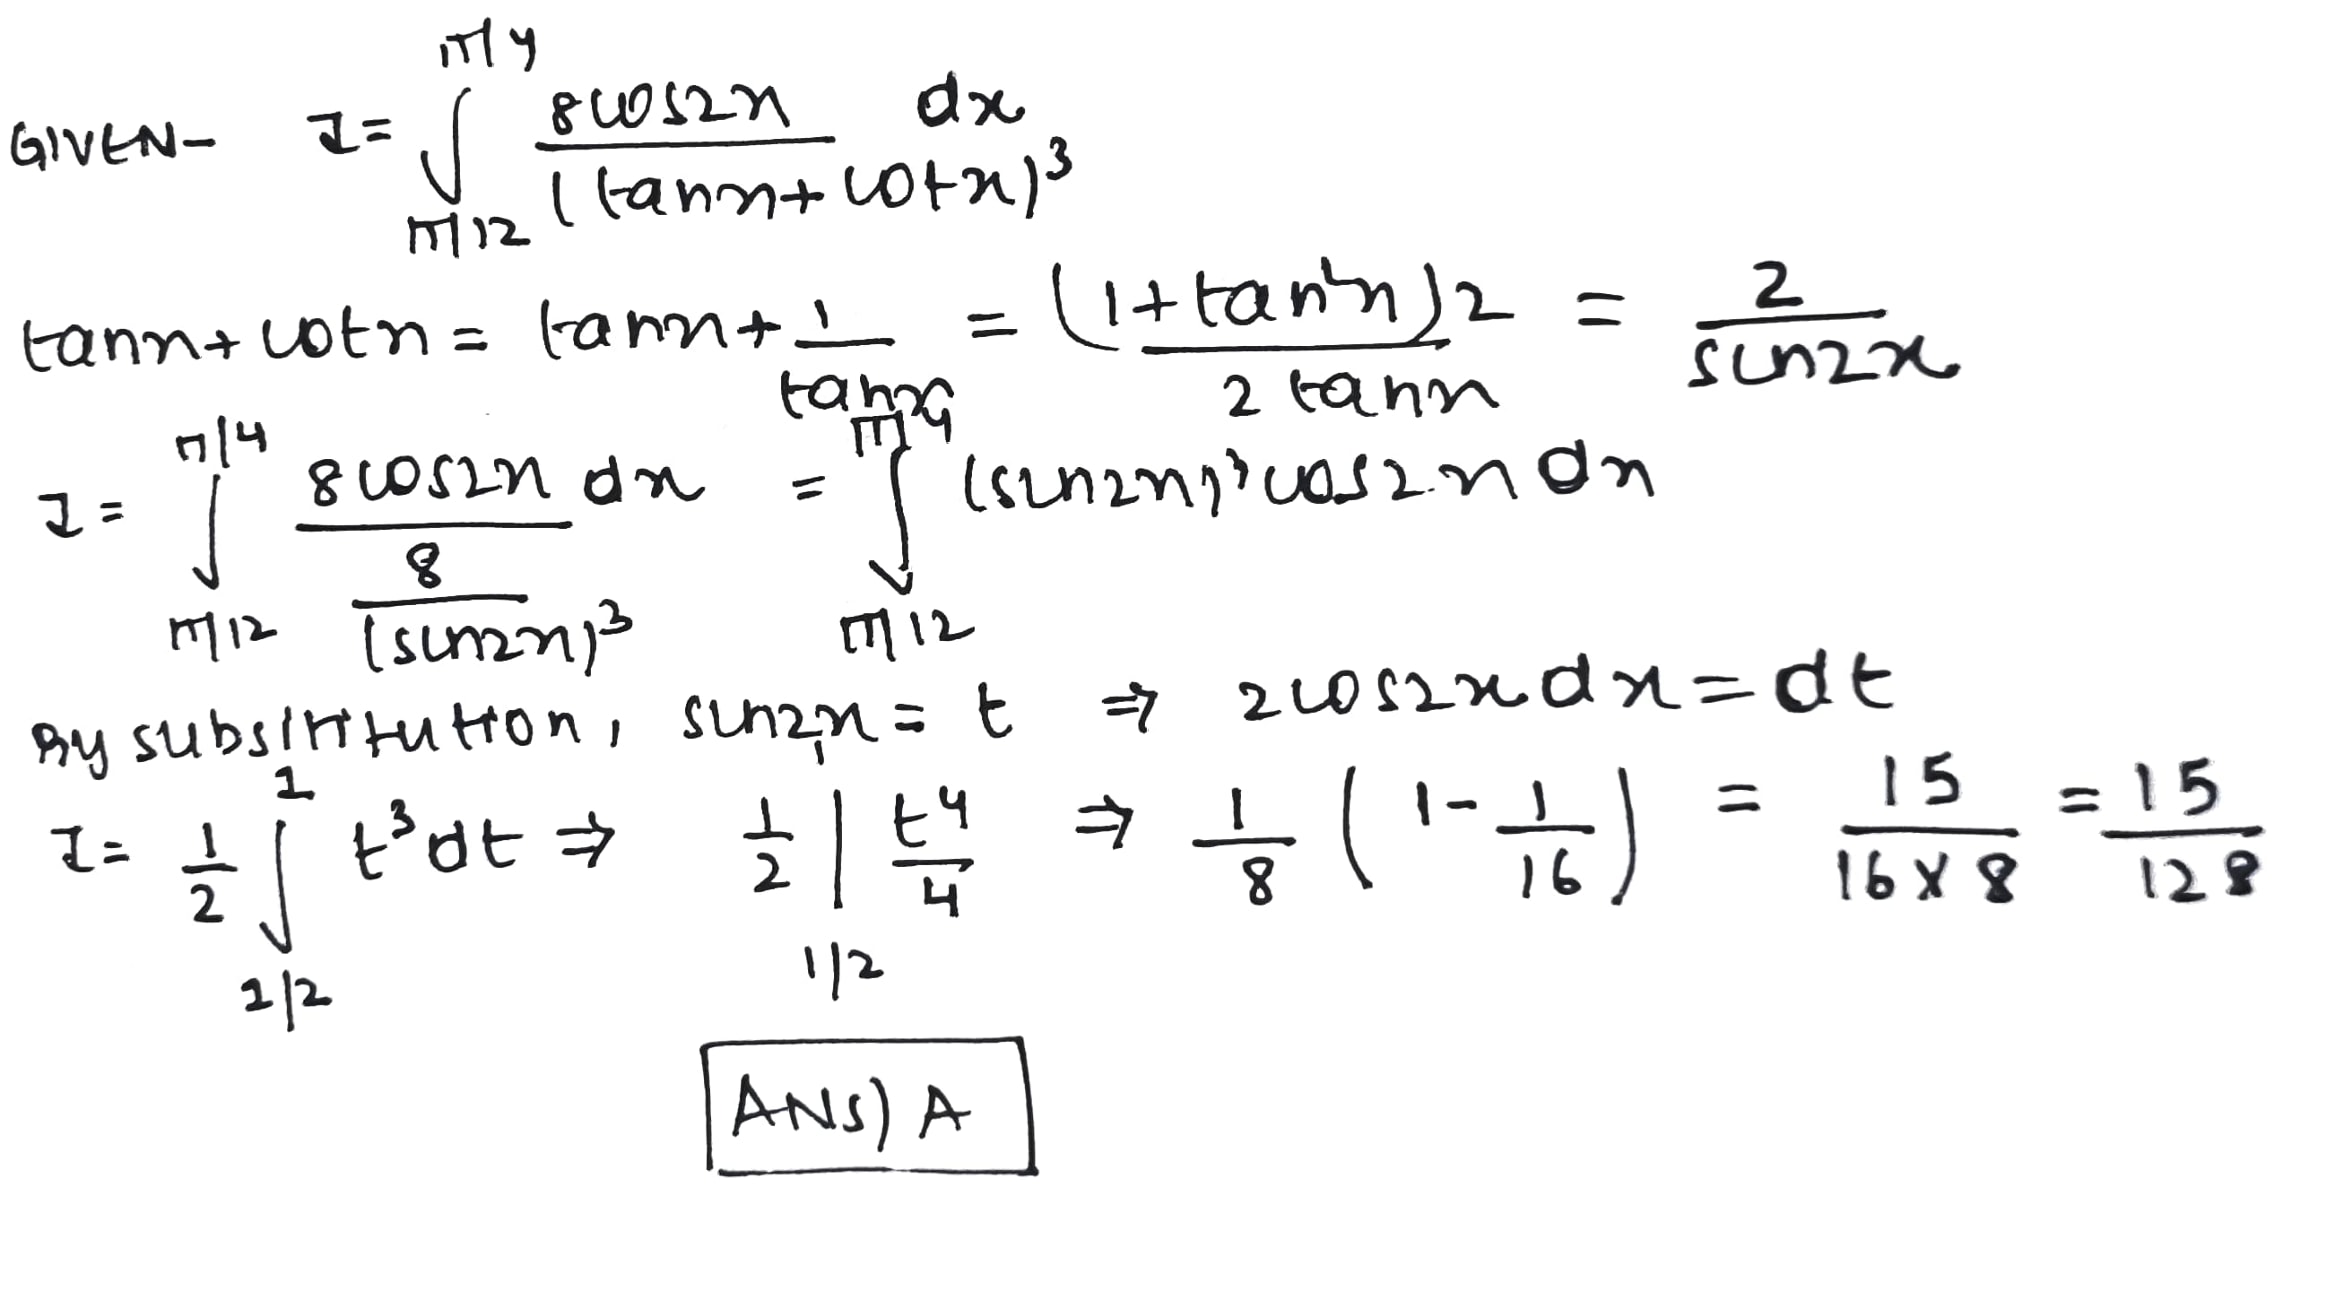 GIVEN- I = ∫_{π/12}^{π/4} 8cos2x dx / (tanx + cotx)^3
tanx + cotx = tanx + 1/tanx = (1+tan²x)2 / 2 tanx = 2/sin2x
I = ∫_{π/12}^{π/4} 8cos2x dx / (8/(sin2x)^3) = ∫_{π/12}^{π/4} (sin2x)^3 cos2x dx
By substitution, sin2x = t ⇒ 2cos2x dx = dt
I = 1/2 ∫_{1/2}^{1} t^3 dt ⇒ 1/2 |t^4/4|_{1/2}^{1} ⇒ 1/8 (1 - 1/16) = 15/(16×8) = 15/128
ANS) A